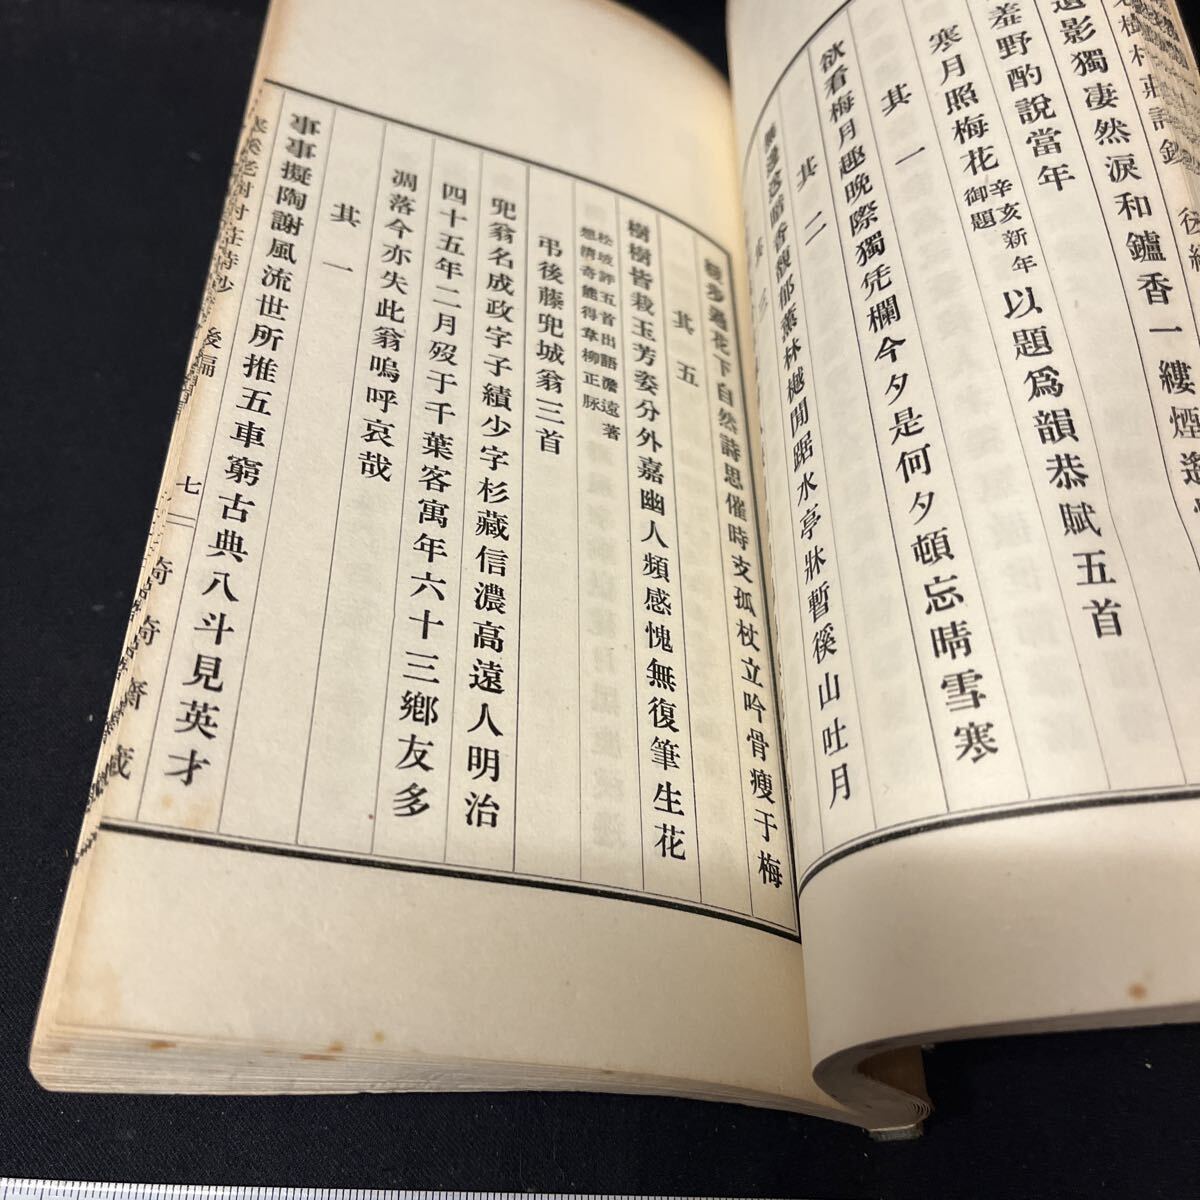 遺影獨凄然淚和鑪香一縷煙
羞野酌說當年
寒月照梅花 辛亥新年御題 以題爲韻恭賦五首
其一
欲看梅月趣晚際獨凭欄今夕是何夕頓忘晴雪寒
其二
暗香馥郁薰林樾閒踞水亭牀暫徯山吐月
花下自然詩思催時支孤杖立吟骨瘦于梅
其五
樹樹皆栽玉芳姿分外嘉幽人頻感愧無復筆生花
松坡評五首出語澹遠著
想清奇能得韋柳正脈
弔後藤兜城翁三首
兜翁名成政字子績少字杉藏信濃高遠人明治
四十五年二月歿于千葉客寓年六十三鄕友多
凋落今亦失此翁嗚呼哀哉
其一
事事擬陶謝風流世所推五車窮古典八斗見英才
後編
七
齋藏